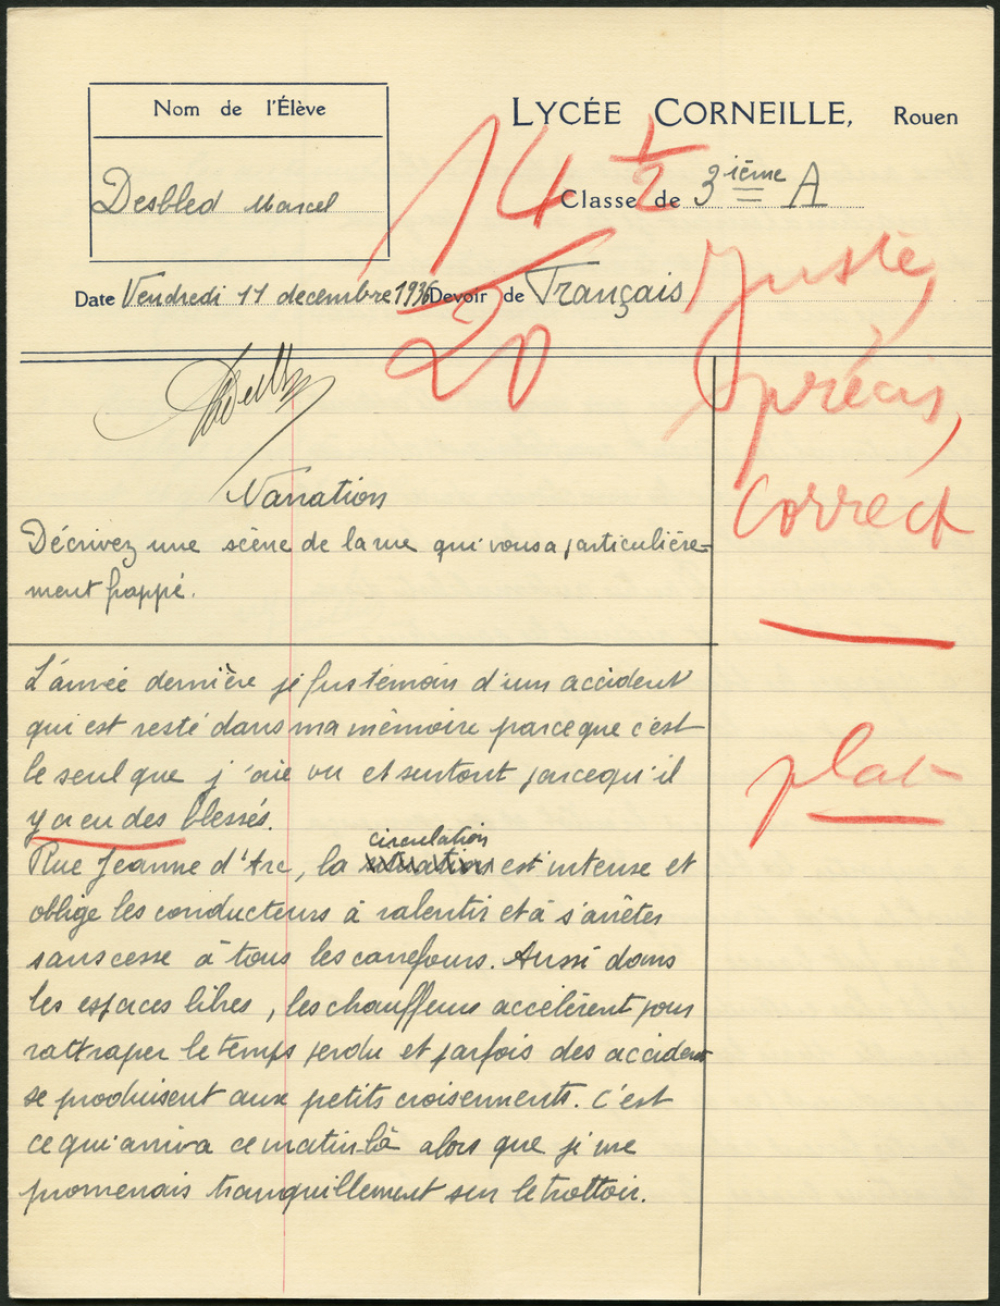 Nom de l'Élève
LYCÉE CORNEILLE, Rouen
Desbled Marcel
14 1/2
20
Classe de 3ième A
Date Vendredi 11 decembre 1936 Devoir de Français
Juste,
précis,
correct
Narration
Décrivez une scène de la rue qui vous a particulière-
ment frappé.
L'année dernière je fus témoin d'un accident
qui est resté dans ma mémoire parce que c'est
le seul que j'aie vu et surtout parcequ'il
plat
y a eu des blessés.
circulation
Rue Jeanne d'Arc, la est intense et
oblige les conducteurs à ralentir et à s'arrêter
sans cesse à tous les carrefours. Aussi dans
les espaces libres, les chauffeurs accélèrent pour
rattraper le temps perdu et parfois des accidents
se produisent aux petits croisements. C'est
ce qui arriva ce matin-là alors que je me
promenais tranquillement sur le trottoir.